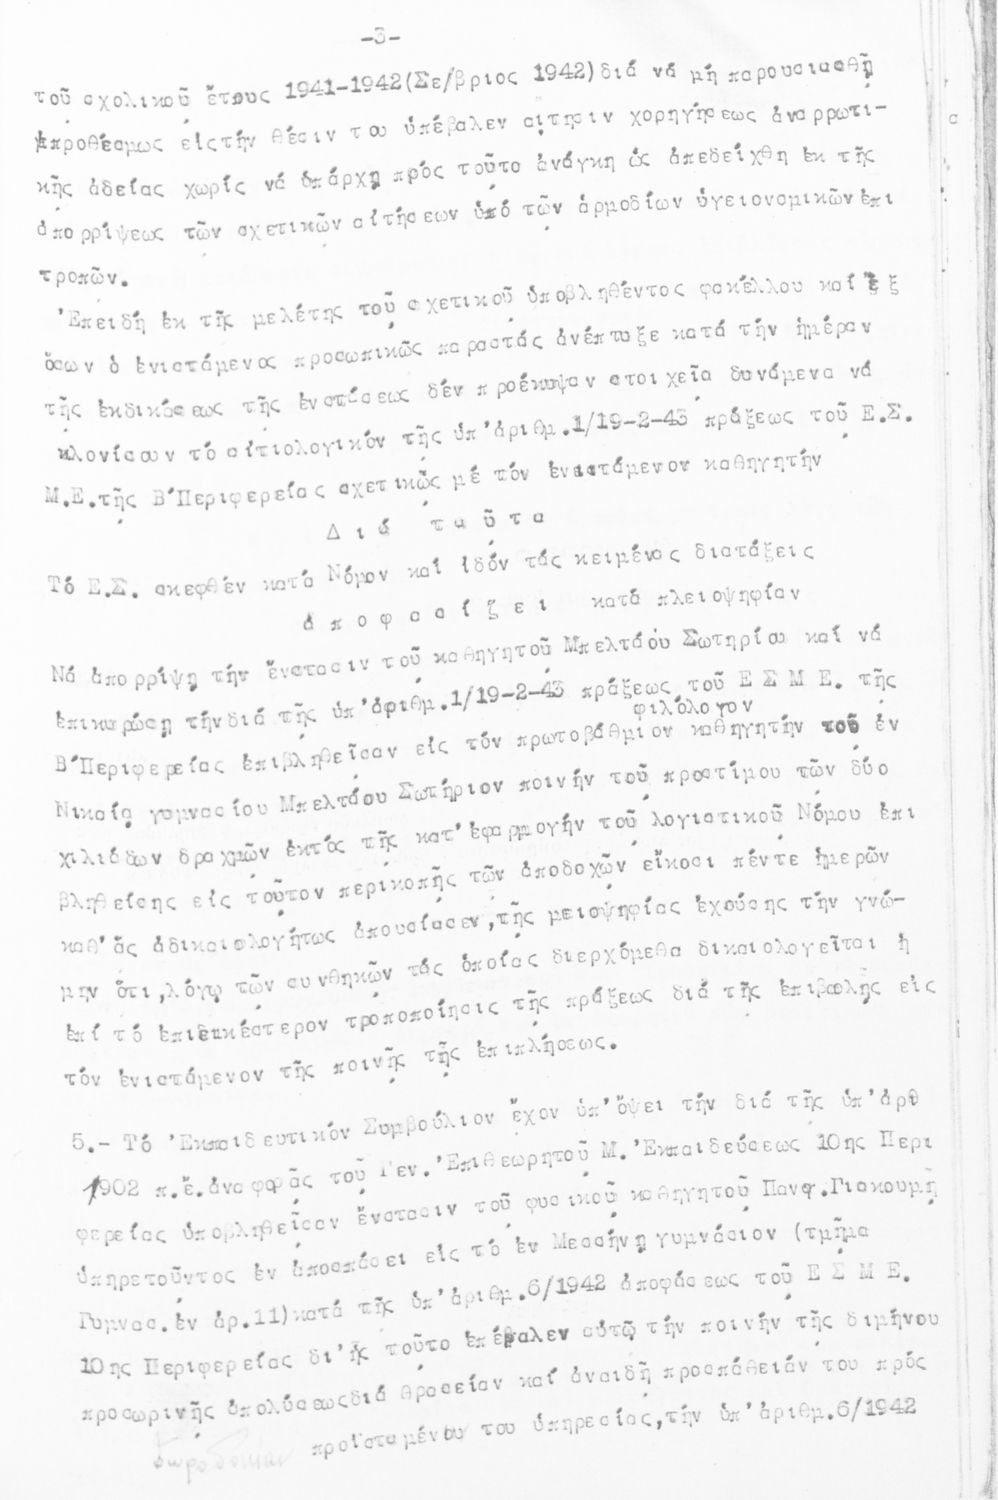 -3-
τοῦ σχολικοῦ ἔτους 1941-1942(Σε/βριος 1942)διά νά μή παρουσιασθῇ
ἐμπροθέσμως εἰςτήν θέσιν του ὑπέβαλεν αἴτησιν χορηγήσεως ἀναρρωτι-
κῆς ἀδείας χωρίς νά ὑπάρχῃ πρός τοῦτο ἀνάγκη ὡς ἀπεδείχθη ἐκ τῆς
ἀπορρίψεως τῶν σχετικῶν αἰτήσεων ὑπό τῶν ἁρμοδίων ὑγειονομικῶν ἐπι
τροπῶν.
Ἐπειδή ἐκ τῆς μελέτης τοῦ σχετικοῦ ὑποβληθέντος φακέλλου καί ἐξ
ὅσων ὁ ἐνιστάμενος προσωπικῶς παραστάς ἀνέπτυξε κατά τήν ἡμέραν
τῆς ἐκδικάσεως τῆς ἐνστάσεως δέν προέκυψαν στοιχεῖα δυνάμενα νά
κλονίσουν τό αἰτιολογικόν τῆς ὑπ' ἀριθμ.1/19-2-43 πράξεως τοῦ Ε.Σ.
Μ.Ε.τῆς Β'Περιφερείας σχετικῶς μέ τόν ἐνιστάμενον καθηγητήν
Δ ι ά τ α ῦ τ α
Τό Ε.Σ. σκεφθέν κατά Νόμον καί ἰδόν τάς κειμένας διατάξεις
ἀ π ο φ α σ ί ζ ε ι κατά πλειοψηφίαν
Νά ἀπορρίψῃ τήν ἔνστασιν τοῦ καθηγητοῦ Μπελτάου Σωτηρίου καί νά
ἐπικυρώσῃ τήνδιά τῆς ὑπ' ἀριθμ.1/19-2-43 πράξεως τοῦ Ε Σ Μ Ε. τῆς
φιλόλογον
Β'Περιφερείας ἐπιβληθεῖσαν εἰς τόν πρωτοβάθμιον καθηγητήν τοῦ ἐν
Νικαίᾳ γυμνασίου Μπελτάου Σωτήριον ποινήν τοῦ προστίμου τῶν δύο
χιλιάδων δραχμῶν ἐκτός τῆς κατ' ἐφαρμογήν τοῦ λογιστικοῦ Νόμου ἐπι
βληθείσης εἰς τοῦτον περικοπῆς τῶν ἀποδοχῶν εἴκοσι πέντε ἡμερῶν
καθ' ἅς ἀδικαιολογήτως ἀπουσίασεν,τῆς μειοψηφίας ἐχούσης τήν γνώ-
μην ὅτι,λόγῳ τῶν συνθηκῶν τάς ὁποίας διερχόμεθα δικαιολογεῖται ἡ
ἐπί τό ἐπιεικέστερον τροποποίησις τῆς πράξεως διά τῆς ἐπιβολῆς εἰς
τόν ἐνιστάμενον τῆς ποινῆς τῆς ἐπιπλήσεως.
5.- Τό Ἐκπαιδευτικόν Συμβούλιον ἔχον ὑπ' ὄψει τήν διά τῆς ὑπ' ἀρθ
1902 π.ἔ.ἀναφορᾶς τοῦ Γεν.Ἐπιθεωρητοῦ Μ.Ἐκπαιδεύσεως 10ης Περι
φερείας ὑποβληθεῖσαν ἔνστασιν τοῦ φυσικοῦ καθηγητοῦ Παναγ.Γιακουμῆ
ὑπηρετοῦντος ἐν ἀποσπάσει εἰς τό ἐν Μεσσήνῃ γυμνάσιον (τμῆμα
Γυμνασ.ἐν ἀρ.11)κατά τῆς ὑπ' ἀριθμ.6/1942 ἀποφάσεως τοῦ Ε Σ Μ Ε.
10ης Περιφερείας δι' ἧς τοῦτο ἐπέβαλεν αὐτῷ τήν ποινήν τῆς διμήνου
προσωρινῆς ἀπολύσεωςδιά θρασεῖαν καί ἀναιδῆ προσπάθειάν του πρός
προϊσταμένου του ὑπηρεσίας,τήν ὑπ' ἀριθμ.6/1942